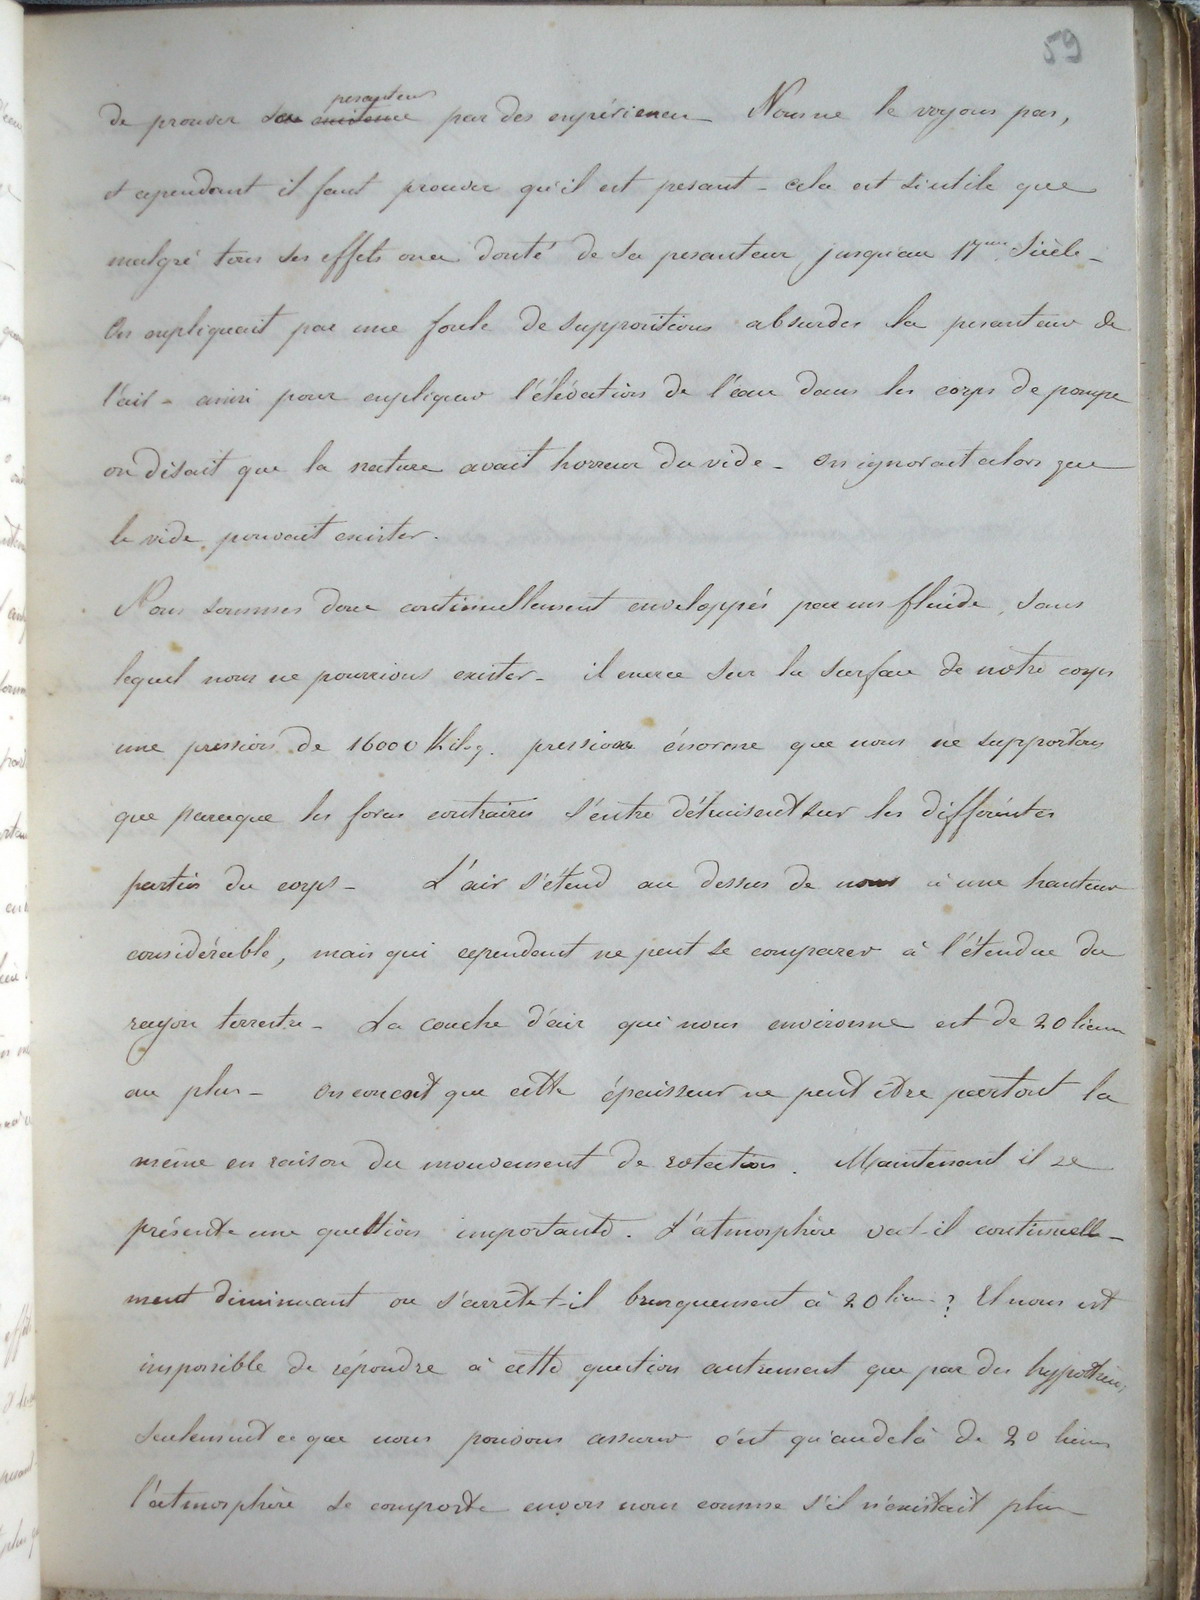 59
pesanteur
de prouver son existence par des expériences – Nous ne le voyons pas,
et cependant il faut prouver qu'il est pesant – cela est si utile que
malgré tous ses effets on a douté de sa pesanteur jusqu'au 17me Siècle –
On expliquait par une foule de suppositions absurdes la pesanteur de
l'air – ainsi pour expliquer l'élévation de l'eau dans les corps de pompe
on disait que la nature avait horreur du vide – On ignorait alors que
le vide pouvait exister.
Nous sommes donc continuellement enveloppés par un fluide, sans
lequel nous ne pourrions exister – il exerce sur la surface de notre corps
une pression de 16000 Kilog. pression énorme que nous ne supportons
que parceque les forces contraires s'entre détruisent sur les différentes
parties du corps – L'air s'étend au dessus de nous à une hauteur
considérable, mais qui cependant ne peut se comparer à l'étendue du
rayon terrestre – La couche d'air qui nous environne est de 20 lieues
au plus – On conçoit que cette épaisseur ne peut être partout la
même en raison du mouvement de rotation. Maintenant il se
présente une question importante. L'atmosphère va-t-il continuelle–
ment diminuant ou s'arrête-t-il brusquement à 20 lieues ? Il nous est
impossible de répondre à cette question autrement que par des hypothèses,
seulement ce que nous pouvons assurer c'est qu'au delà de 20 lieues
l'atmosphère se comporte envers nous comme s'il n'existait plus